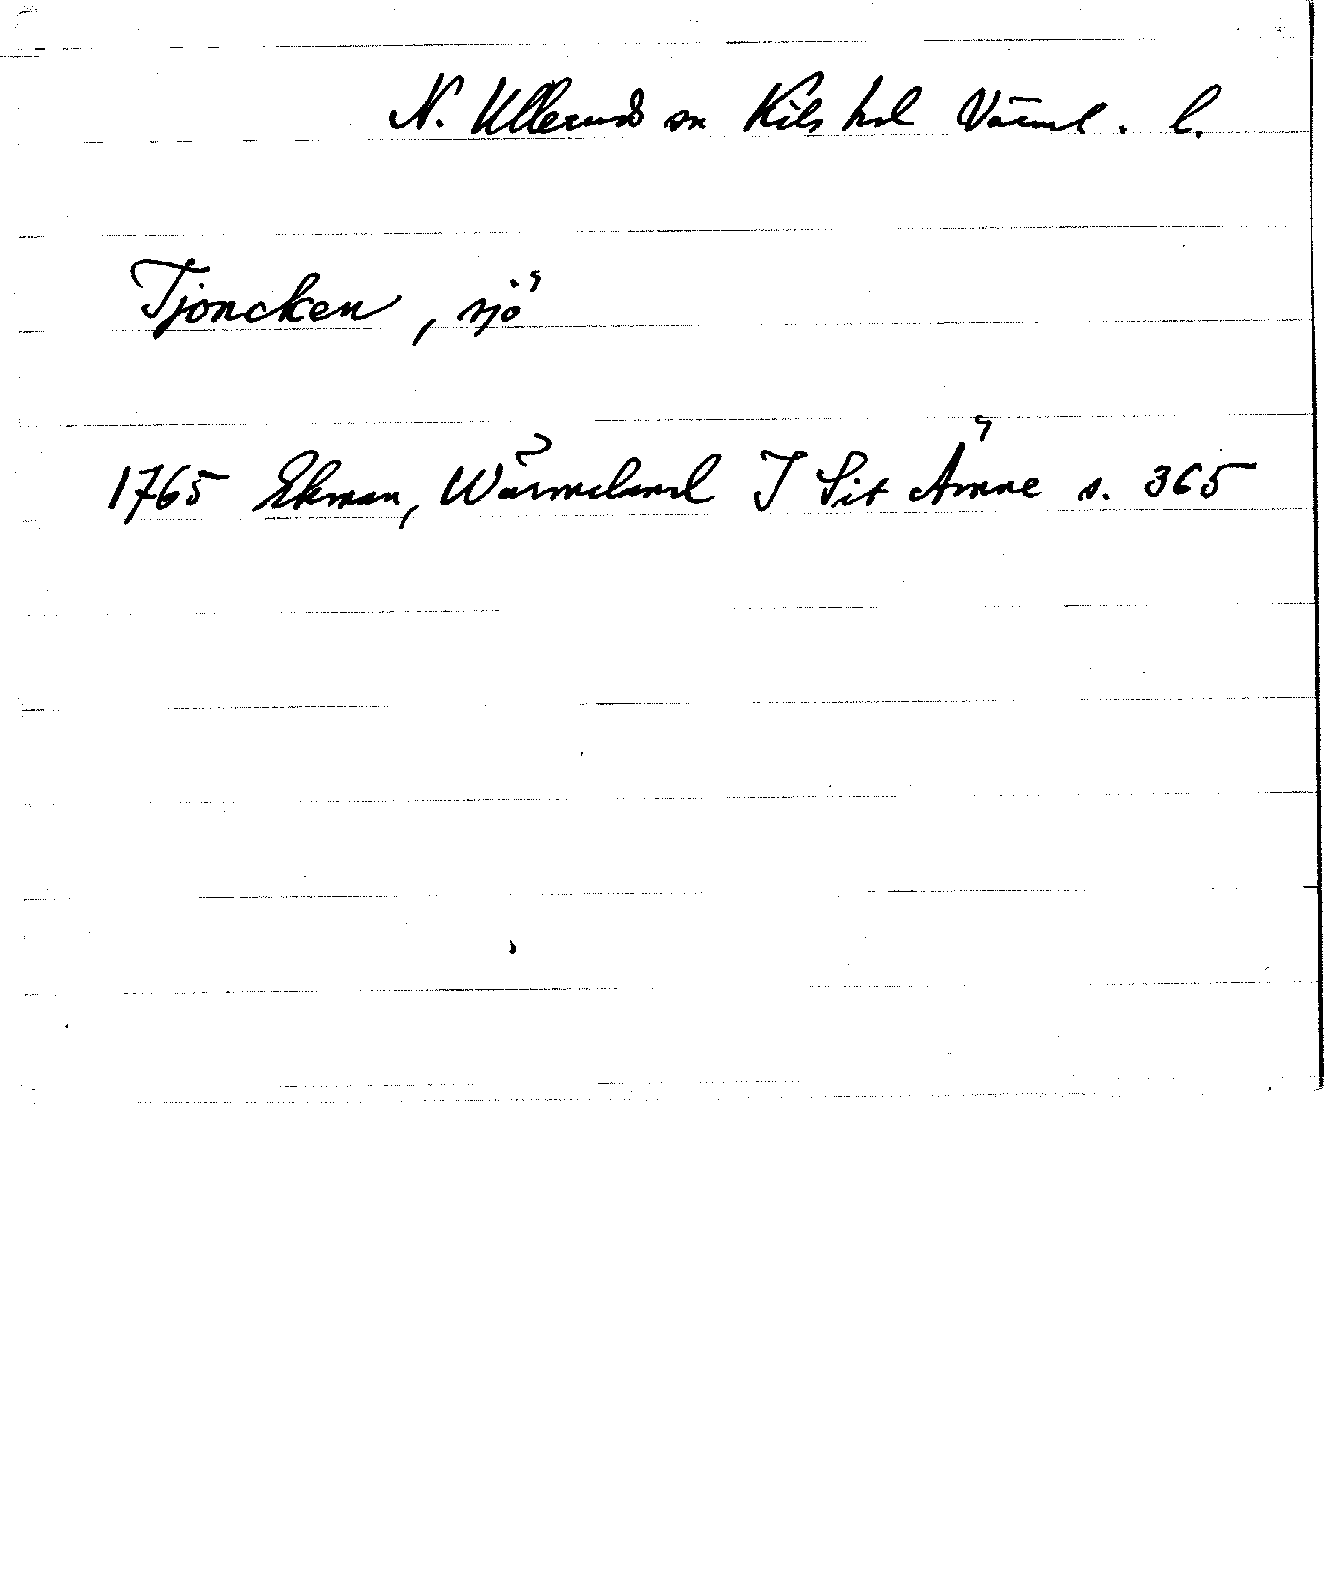 N. Ullerud sn Kils hd Värml. l.
Tjoncken, sjö
1765 Ekman, Wärmeland I Sit Ämne s. 365